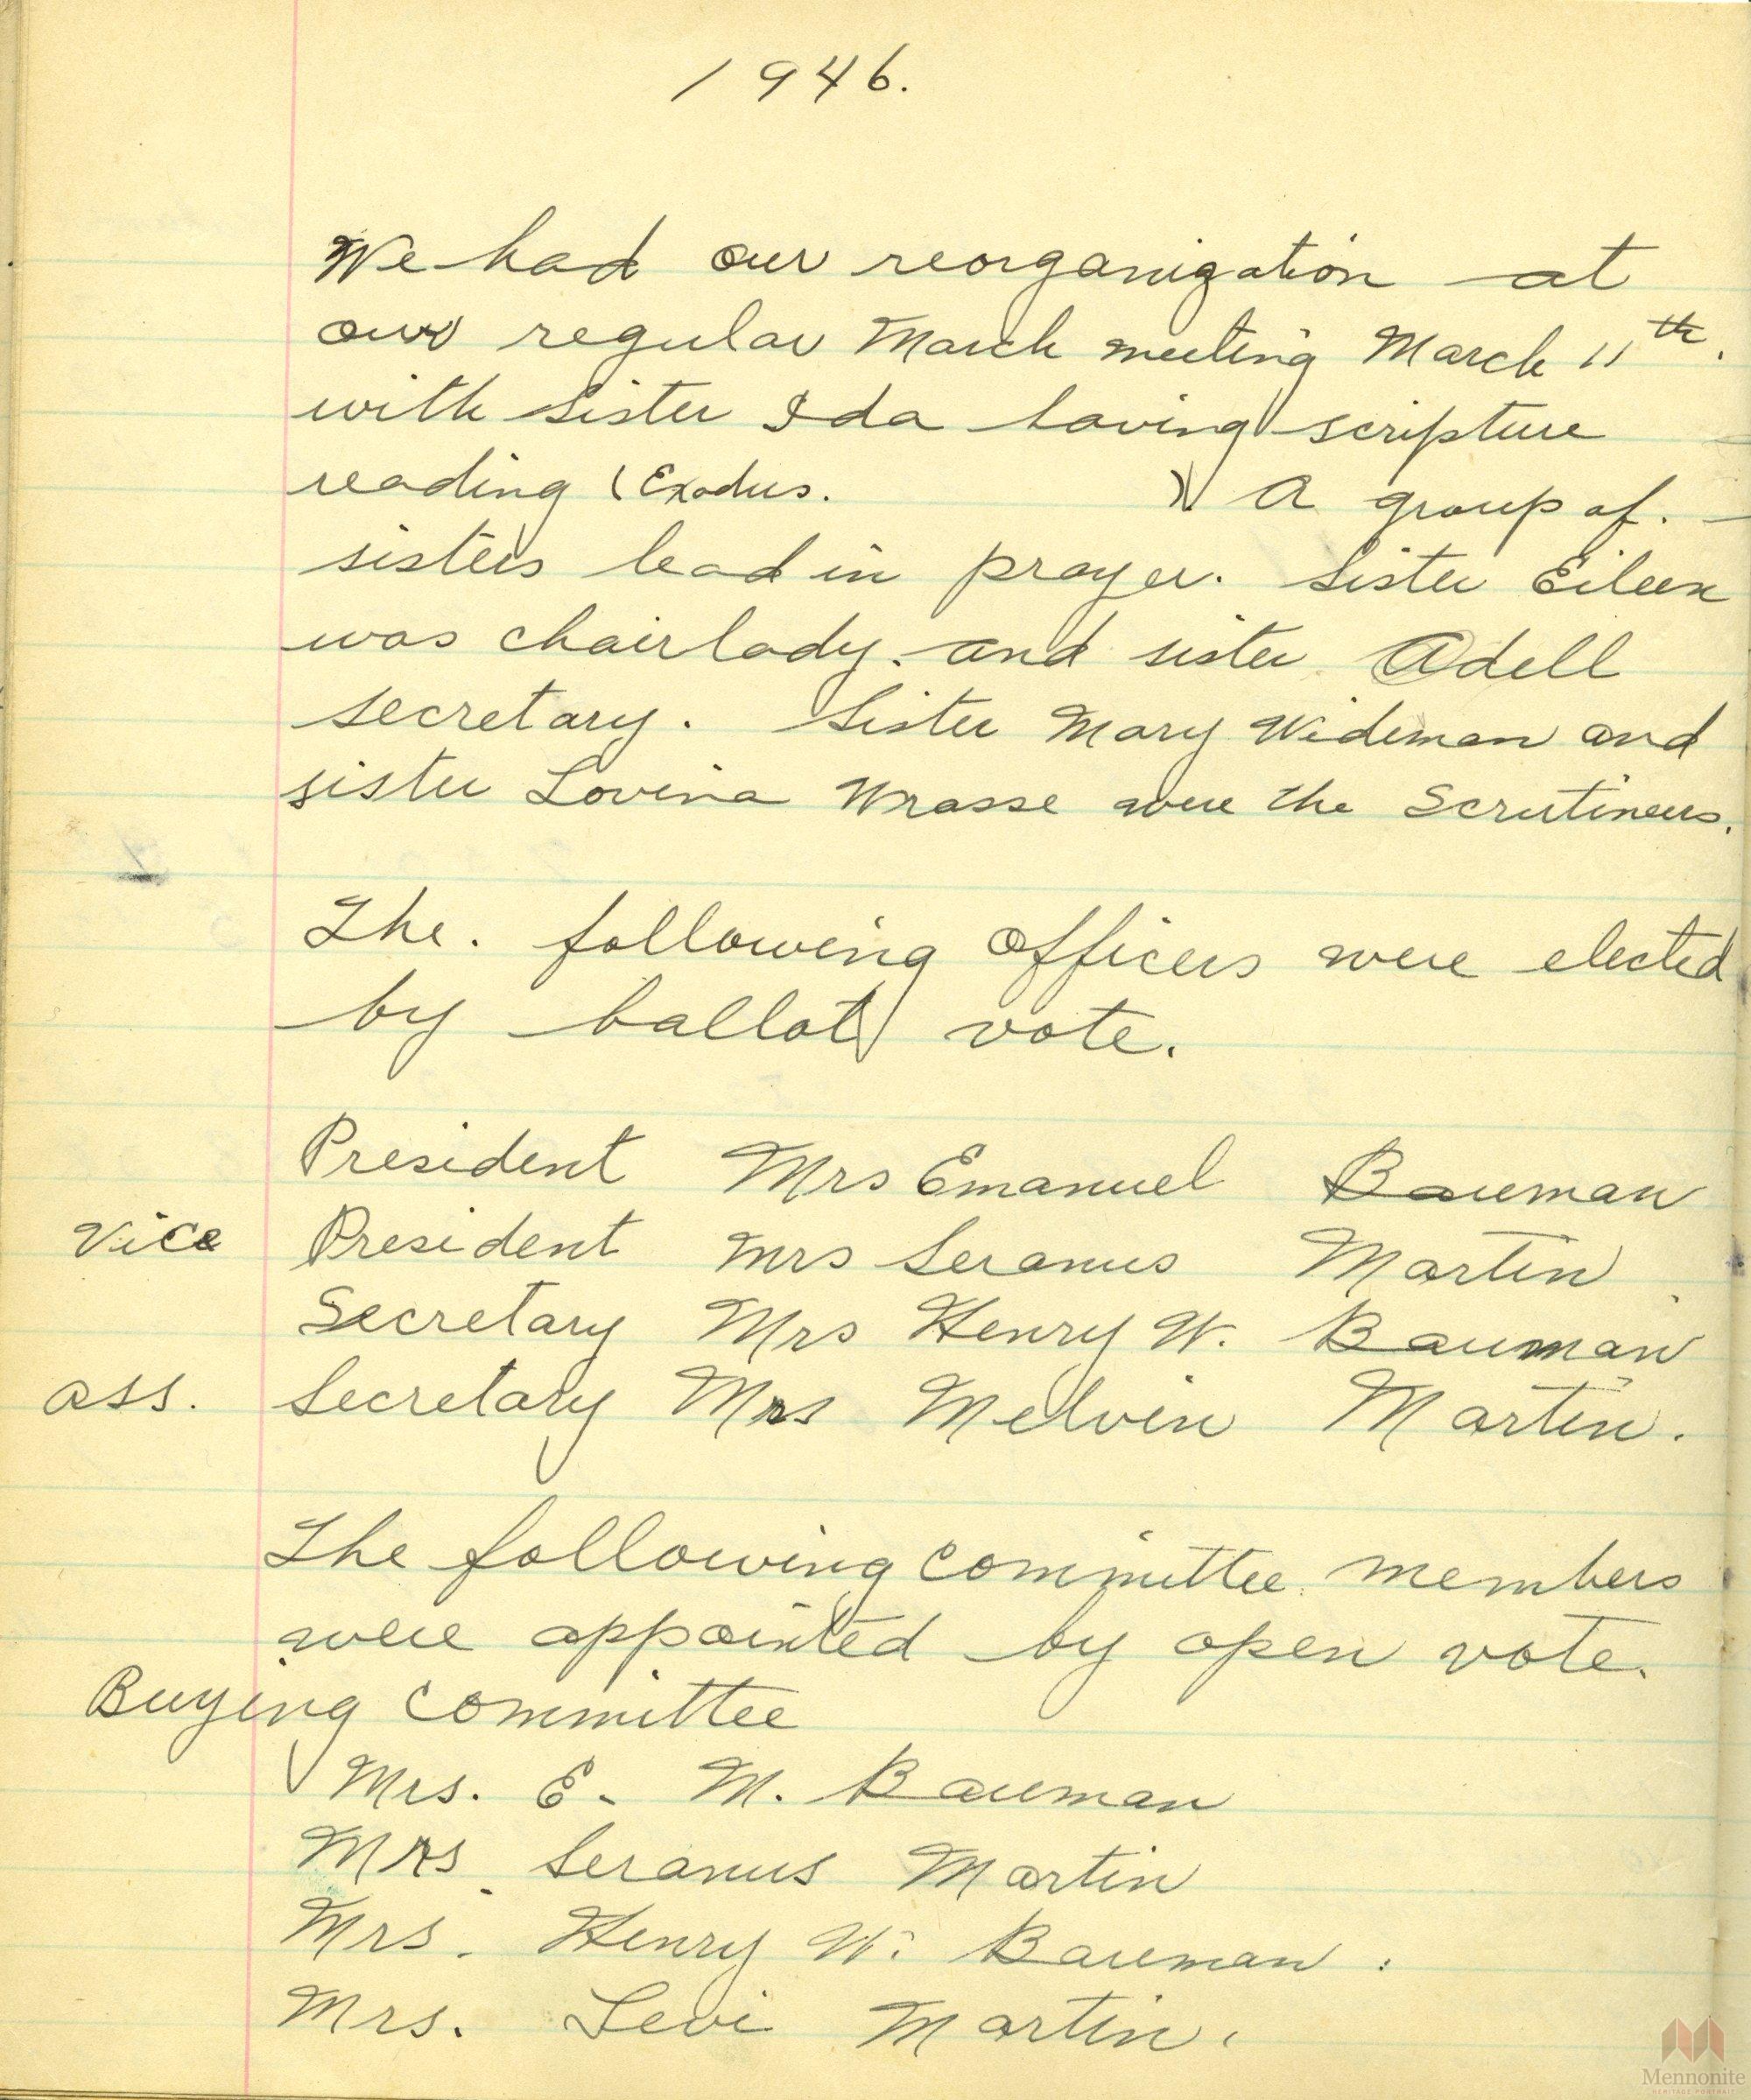 1946.
We had our reorganization at
our regular March meeting March 11th.
with sister Ida having scripture
reading (Exodus. ) A group of.
sisters lead in prayer. Sister Eileen
was chairlady. and sister Adell
secretary. Sister Mary Wideman and
sister Lovina Wrasse were the Scrutineers.
The. following officers were elected
by ballot vote.
President Mrs Emanuel Bauman
Vice President Mrs Seranus Martin
Secretary Mrs Henry W. Bauman
ass. Secretary Mrs Melvin Martin.
The following committee members
were appointed by open vote.
Buying committee
Mrs. E. M. Bauman
Mrs. Seranus Martin
Mrs. Henry W. Bauman.
Mrs. Levi Martin.
Mennonite
HERITAGE PORTRAIT